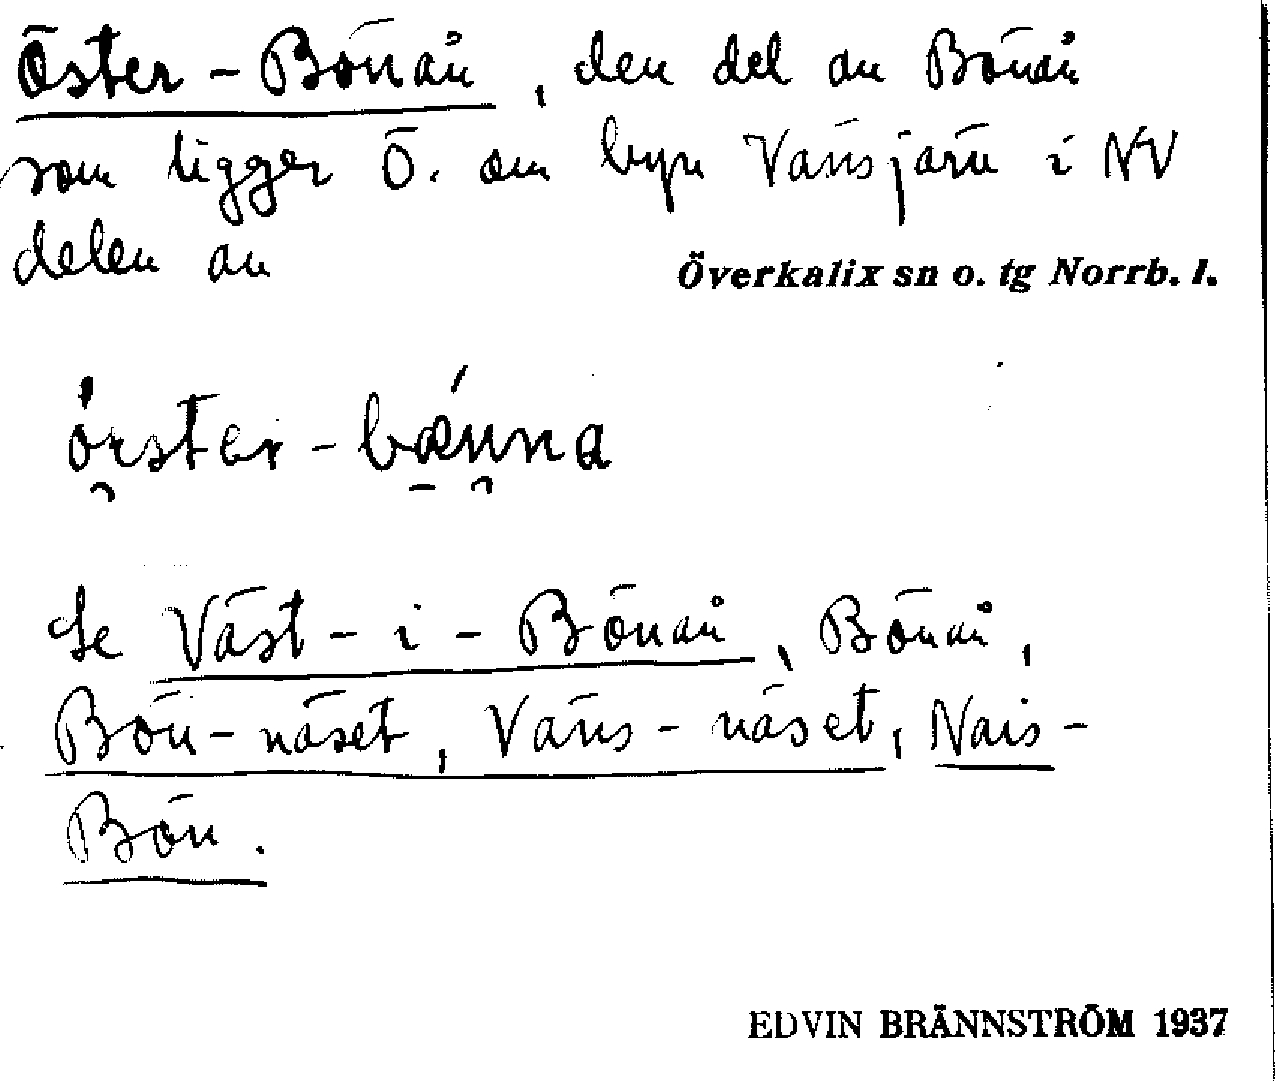 Öster-Bönån, den del av Bönån
som ligger Ö. om byn Vänsjärv i NV
delen av
Överkalix sn o. tg Norrb. l.
Se Väst-i-Bönån, Bönån,
Bön-näset, Väns-näset, Nais-
Bön.
EDVIN BRÄNNSTRÖM 1937